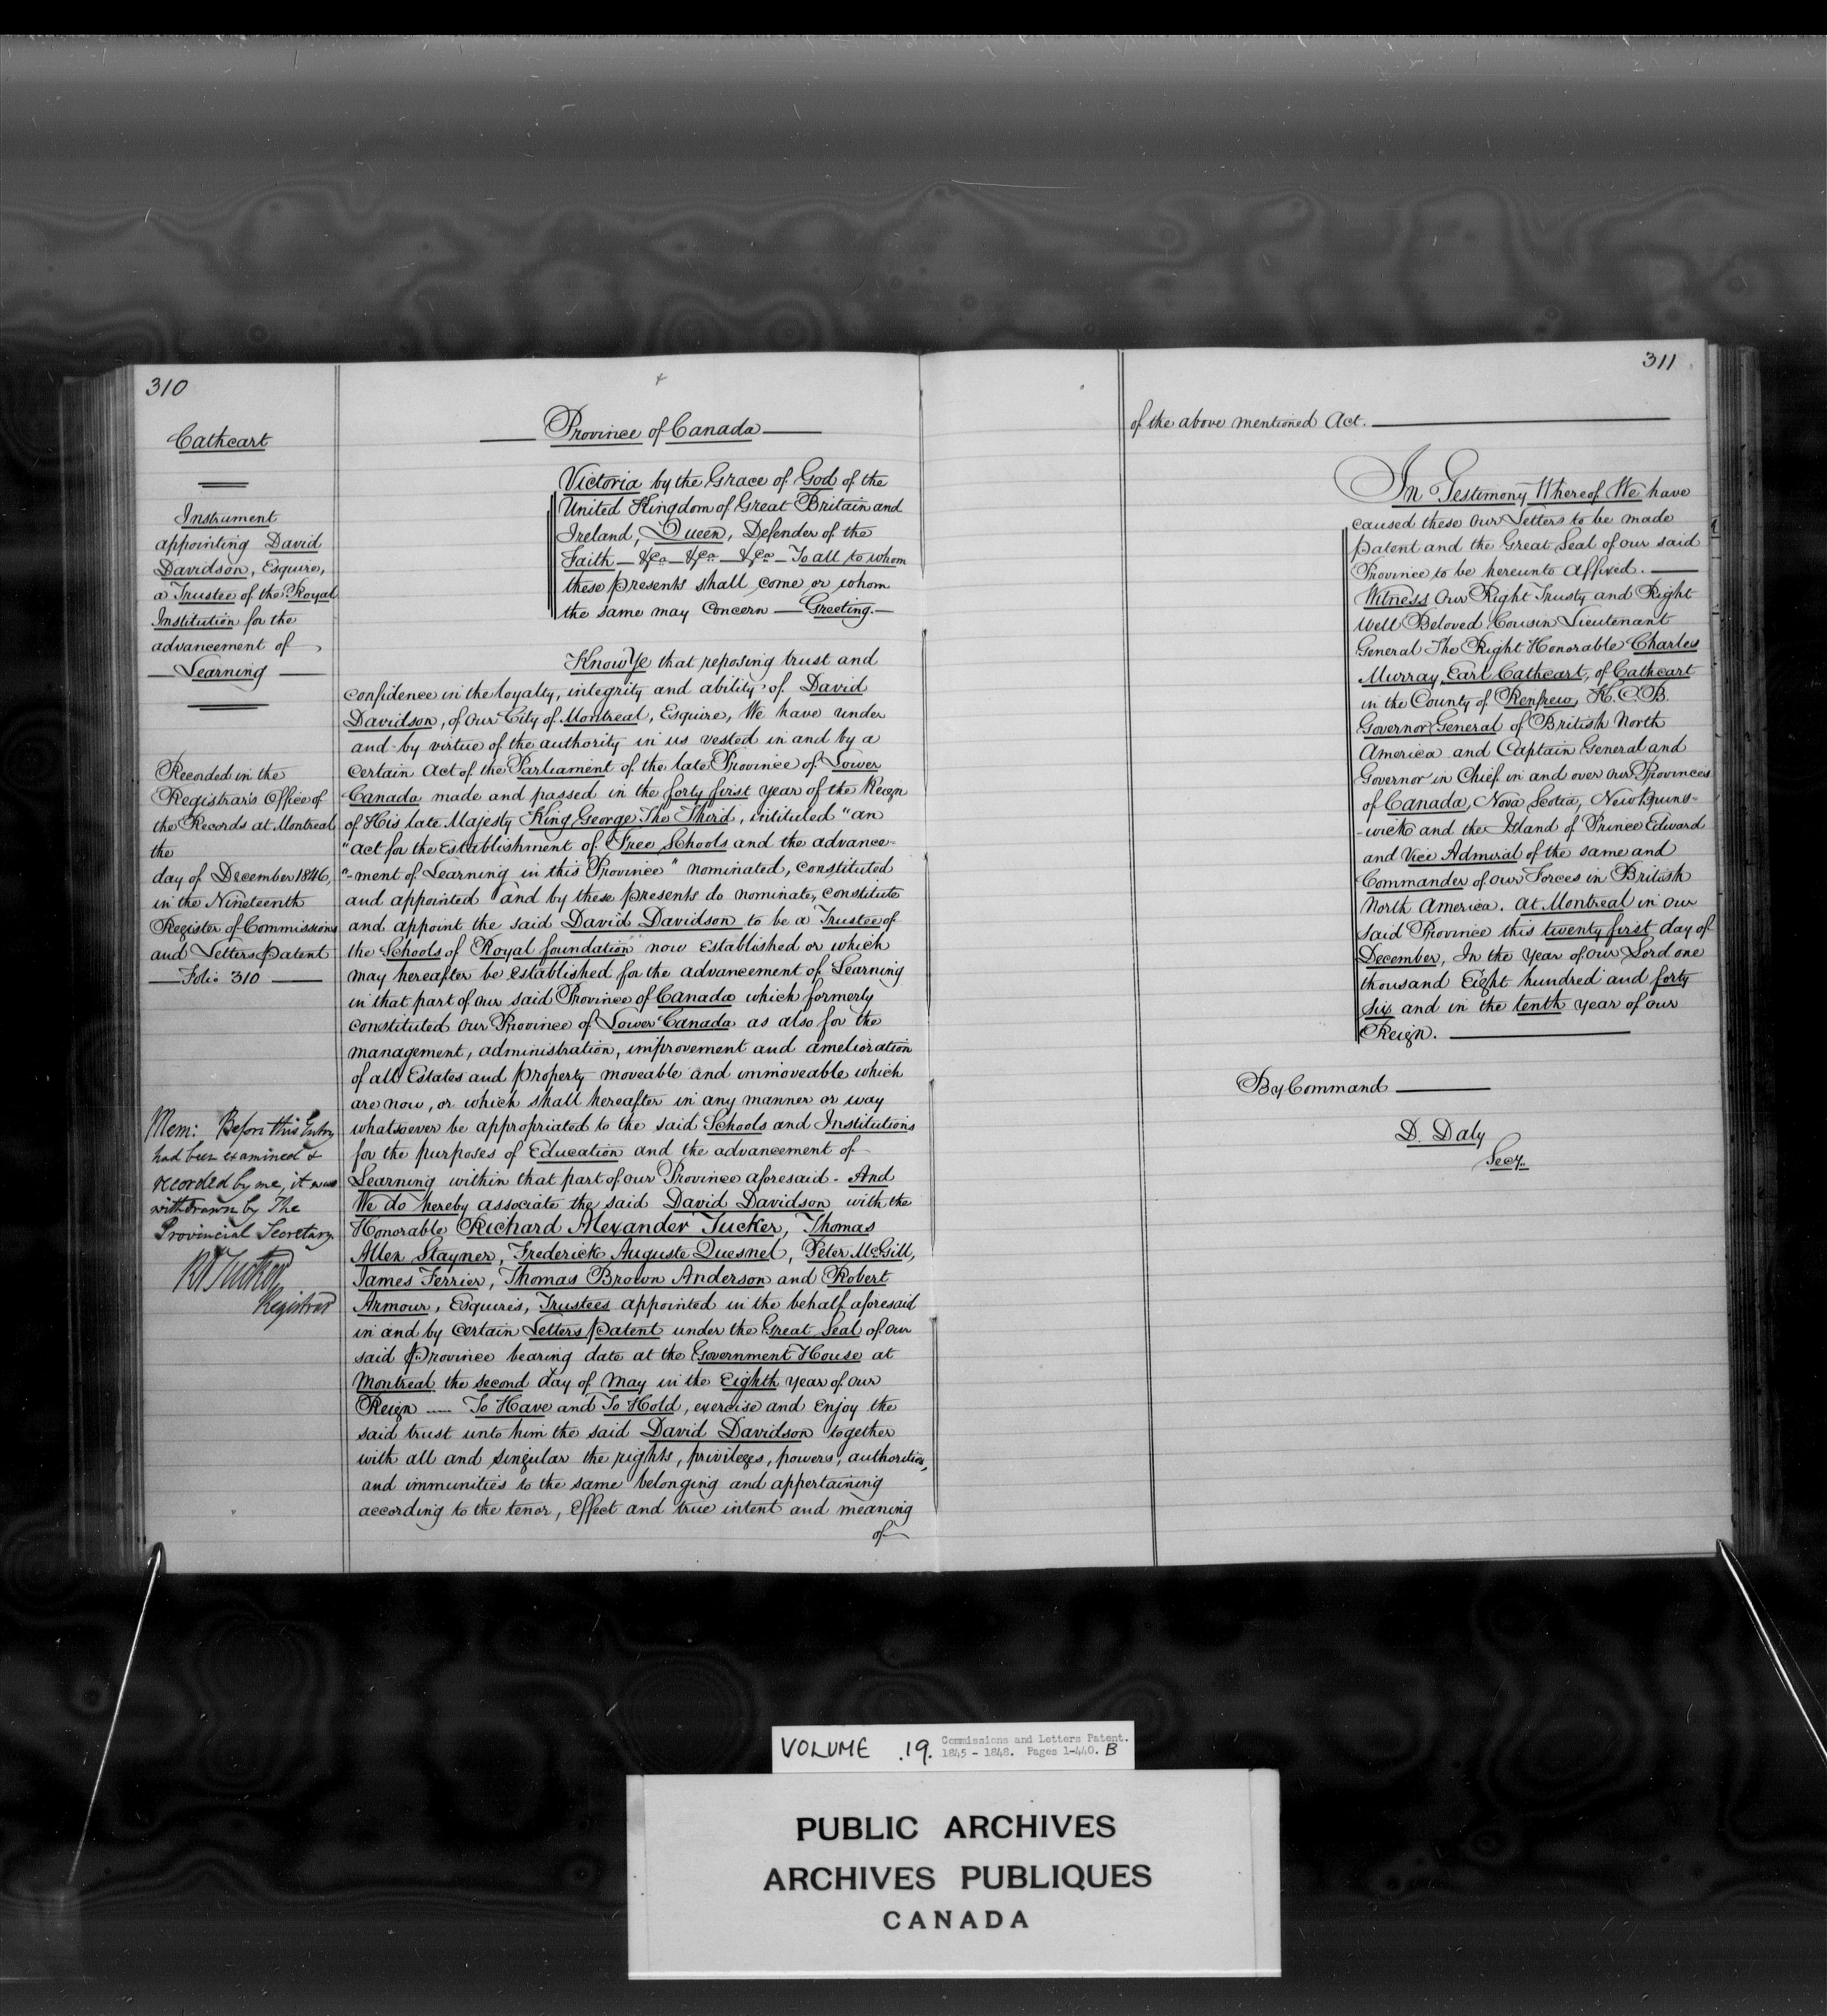 310
Cathcart
Instrument
appointing David
Davidson, Esquire,
a Trustee of the Royal
Institution for the
advancement of
Learning
Recorded in the
Registrar's Office of
the Records at Montreal
the
day of December 1846,
in the Nineteenth
Register of Commissions
and Letters Patent
Folio 310
Mem: Before this Entry
had been examined &
recorded by me, it was
withdrawn by The
Provincial Secretary.
RATucker
Registrar
Province of Canada
Victoria by the Grace of God of the
United Kingdom of Great Britain and
Ireland, Queen, Defender of the
Faith — &ca — &ca — &ca — To all to whom
these presents shall come or whom
the same may Concern — Greeting. —
Know Ye that reposing trust and
confidence in the loyalty, integrity and ability of David
Davidson, of our City of Montreal, Esquire, We have under
and by virtue of the authority in us vested in and by a
certain Act of the Parliament of the late Province of Lower
Canada made and passed in the forty first year of the Reign
of His late Majesty King George The Third, intituled "an
"act for the Establishment of Free Schools and the advance-
"-ment of Learning in this Province" nominated, constituted
and appointed and by these presents do nominate, constitute
and appoint the said David Davidson to be a Trustee of
the Schools of Royal foundation now established or which
may hereafter be established for the advancement of Learning
in that part of our said Province of Canada which formerly
constituted our Province of Lower Canada as also for the
management, administration, improvement and amelioration
of all Estates and property moveable and immoveable which
are now, or which shall hereafter in any manner or way
whatsoever be appropriated to the said Schools and Institutions
for the purposes of Education and the advancement of
Learning within that part of our Province aforesaid - And
We do hereby associate the said David Davidson with the
Honorable Richard Alexander Tucker, Thomas
Allen Stayner, Frederick Auguste Quesnel, Peter McGill,
James Ferrier, Thomas Brown Anderson and Robert
Armour, Esquires, Trustees appointed in the behalf aforesaid
in and by certain Letters Patent under the Great Seal of our
said Province bearing date at the Government House at
Montreal the second day of May in the Eighth year of our
Reign — To Have and To Hold, exercise and Enjoy the
said trust unto him the said David Davidson together
with all and singular the rights, privileges, powers, authorities,
and immunities to the same belonging and appertaining
according to the tenor, Effect and true intent and meaning
of
311
of the above mentioned Act.
In Testimony Whereof We have
caused these our Letters to be made
patent and the Great Seal of our said
Province to be hereunto Affixed.
Witness Our Right Trusty and Right
Well Beloved Cousin Lieutenant
General The Right Honorable Charles
Murray, Earl Cathcart, of Cathcart
in the County of Renfrew, K.C.B.
Governor General of British North
America and Captain General and
Governor in Chief in and over our Provinces
of Canada, Nova Scotia, New Bruns-
-wick and the Island of Prince Edward
and Vice Admiral of the same and
Commander of our Forces in British
North America. At Montreal in our
said Province this twenty first day of
December, In the Year of our Lord one
thousand Eight hundred and forty
six and in the tenth year of our
Reign.
By Command
D. Daly
Secy.
VOLUME .19. Commissions and Letters Patent.
1845 - 1848. Pages 1-440. B
PUBLIC ARCHIVES
ARCHIVES PUBLIQUES
CANADA